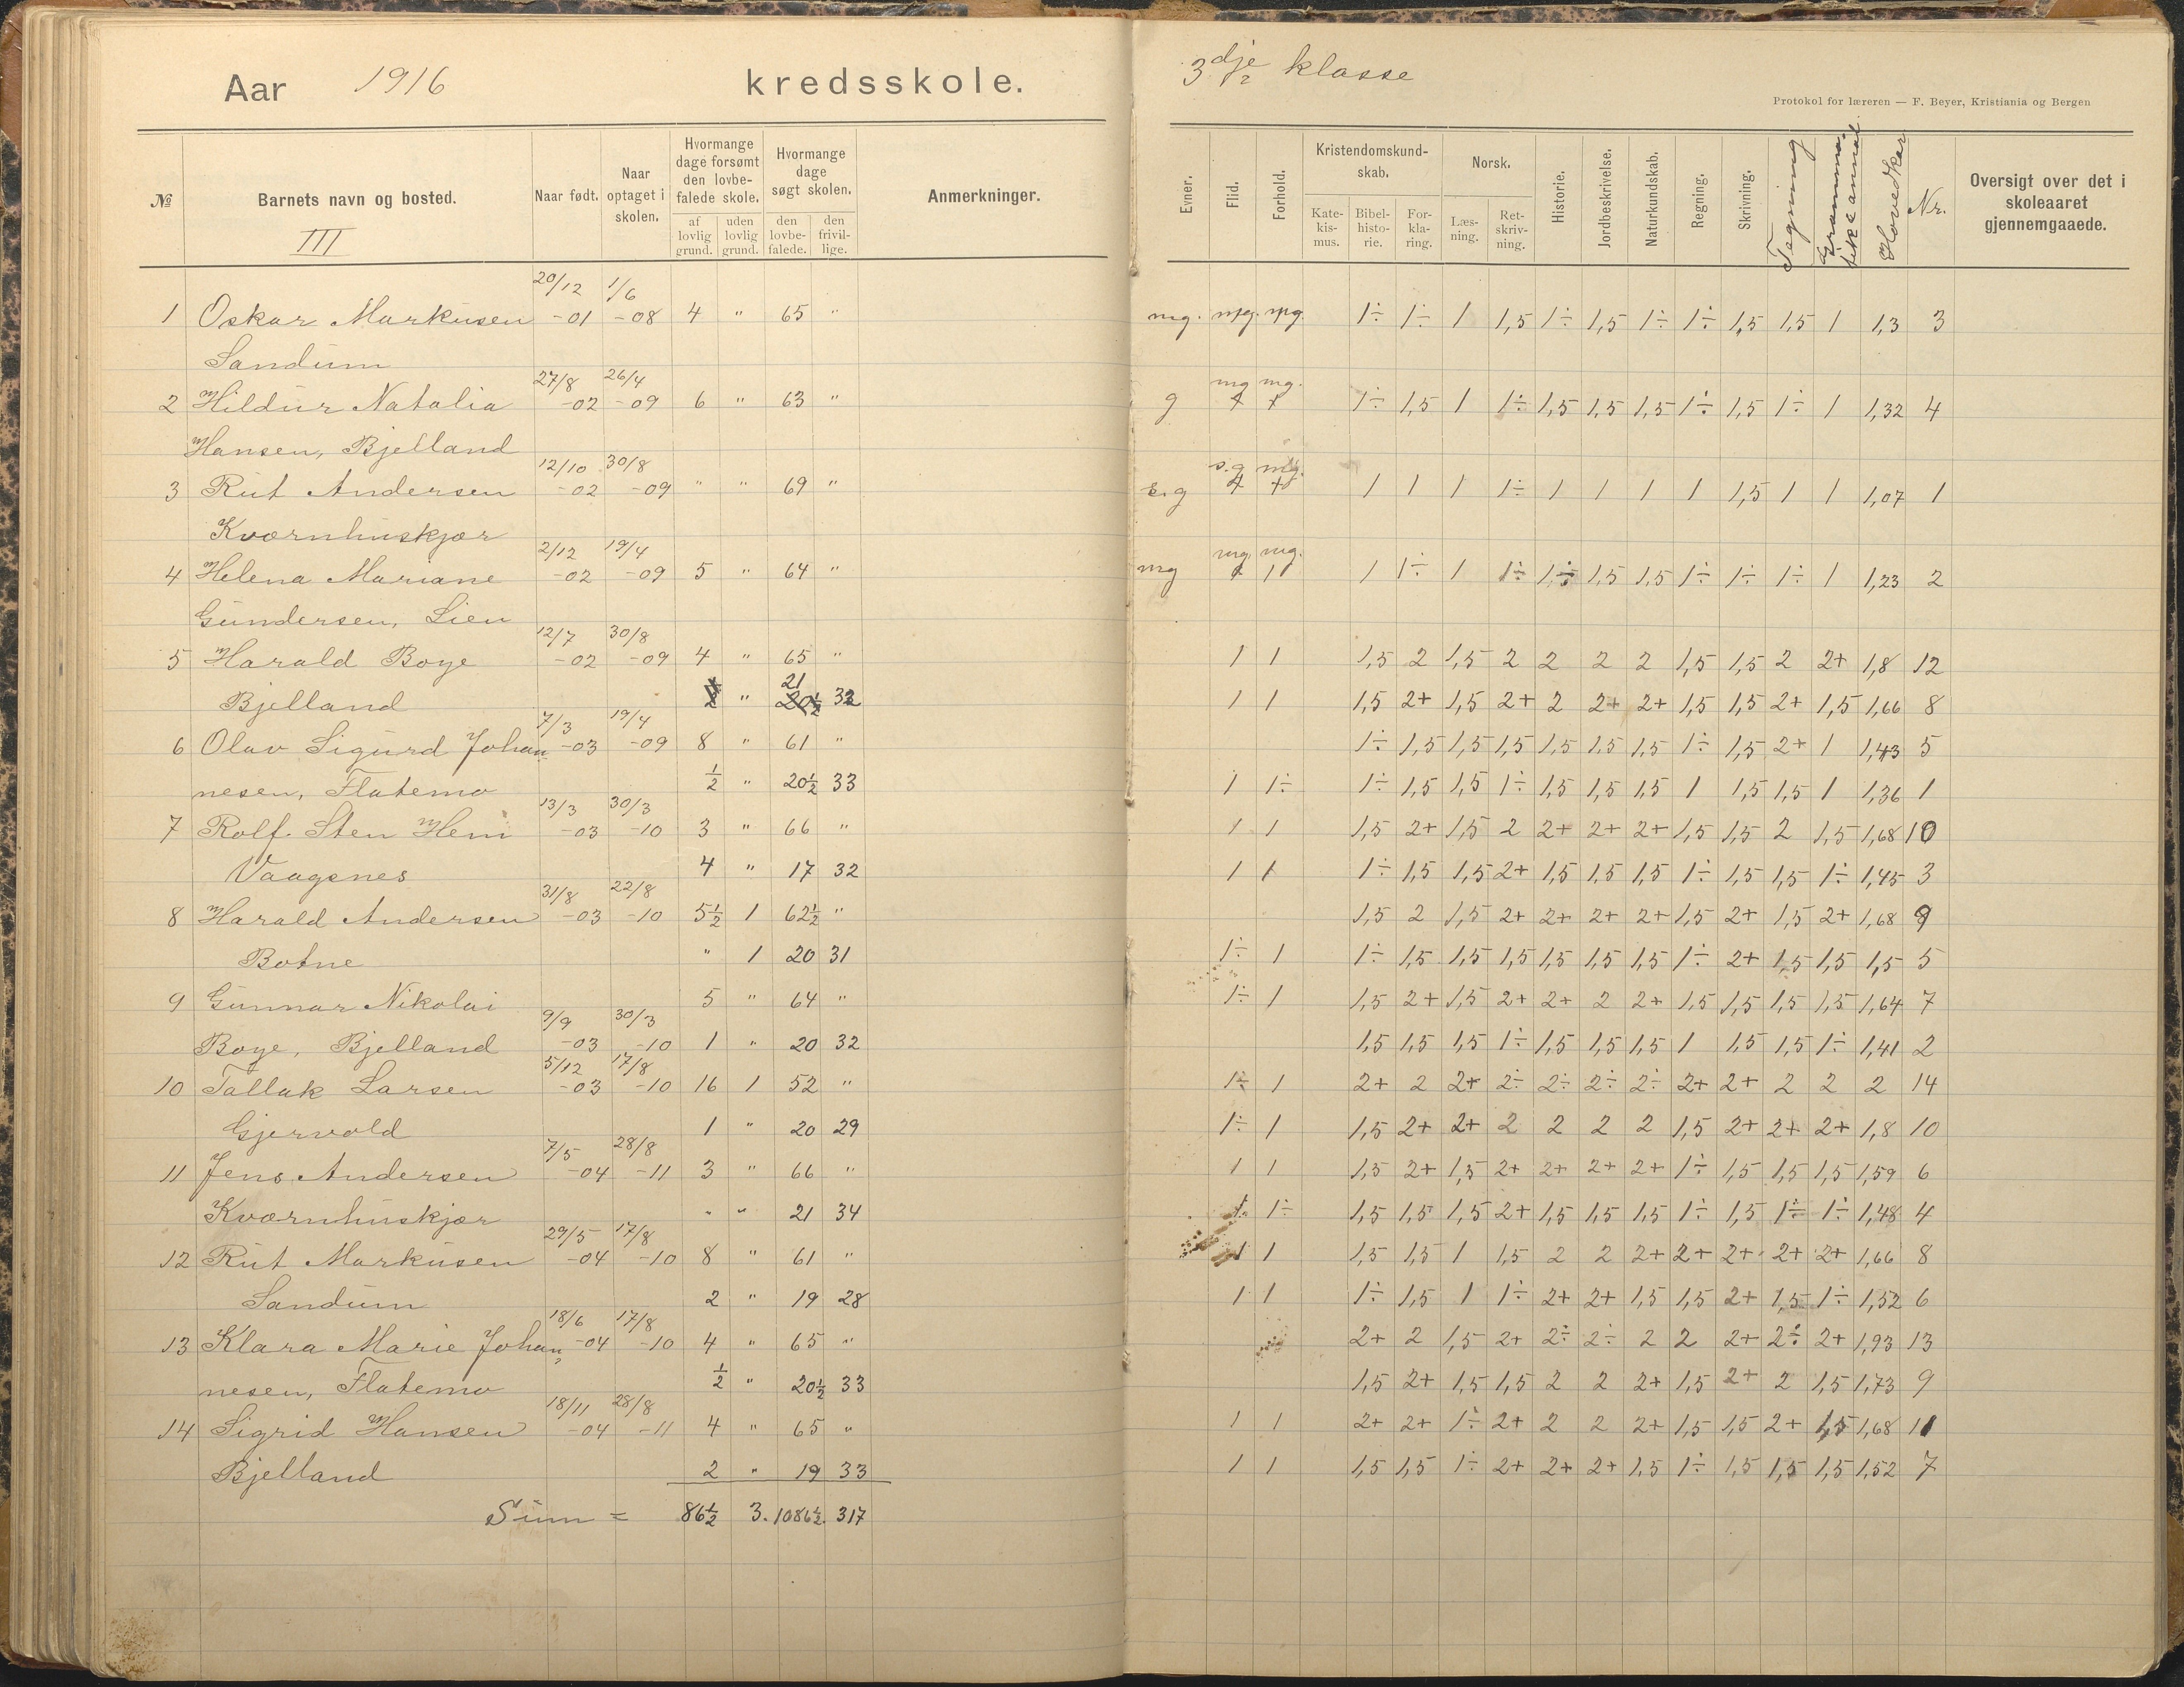 Aar 1916 kredsskole.
3dje klasse
Protokol for læreren — F. Beyer, Kristiania og Bergen
№ Barnets navn og bosted. Naar født. Naar optaget i skolen. Hvormange dage forsømt den lovbefalede skole. af lovlig grund. uden lovlig grund. Hvormange dage søgt skolen. den lovbefalede. den frivillige. Anmerkninger.
III
Evner. Flid. Forhold. Kristendomskundskab. Katekismus. Bibelhistorie. Forklaring. Norsk. Læsning. Retskrivning. Historie. Jordbeskrivelse. Naturkundskab. Regning. Skrivning. Tegning Hovedkar Nr. Oversigt over det i skoleaaret gjennemgaaede.
20/12 1/6
1 Oskar Markusen -01 -08 4 " 65 " mg. mg. mg. 1÷ 1÷ 1 1,5 1÷ 1,5 1÷ 1÷ 1,5 1,5 1 1,3 3
Sandum
27/8 26/4 mg mg.
2 Hildur Natalia -02 -09 6 " 63 " g 1÷ 1,5 1 1÷ 1,5 1,5 1,5 1÷ 1,5 1÷ 1 1,32 4
Hansen, Bjelland
12/10 30/8 s.g mg.
3 Rut Andersen -02 -09 " " 69 " s.g 1 1 1 1÷ 1 1 1 1 1,5 1 1 1,07 1
Kvørnhuskjær
2/12 19/4 mg. mg.
4 Helena Mariane -02 -09 5 " 64 " mg 1 1÷ 1 1÷ 1÷ 1,5 1,5 1÷ 1÷ 1÷ 1 1,23 2
Gundersen, Lien
12/7 30/8
5 Harald Boye -02 -09 4 " 65 " 1 1 1,5 2 1,5 2 2 2 2 1,5 1,5 2 2+ 1,8 12
Bjelland " 21 32 1 1 1,5 2+ 1,5 2+ 2 2+ 2+ 1,5 1,5 2+ 1,5 1,66 8
7/3 19/4
6 Olav Sigurd Johan -03 -09 8 " 61 " 1÷ 1,5 1,5 1,5 1,5 1,5 1,5 1÷ 1,5 2+ 1 1,43 5
nesen, Flatemo ½ " 20½ 33 1 1÷ 1÷ 1,5 1,5 1÷ 1,5 1,5 1,5 1 1,5 1,5 1 1,36 1
13/3 30/3
7 Rolf Sten Heni -03 -10 3 " 66 " 1 1 1,5 2+ 1,5 2 2+ 2+ 2+ 1,5 1,5 2 1,5 1,68 10
Vaagsnes 4 " 17 32 1 1 1÷ 1,5 1,5 2+ 1,5 1,5 1,5 1÷ 1,5 1,5 1÷ 1,45 3
31/8 22/8
8 Harald Andersen -03 -10 5½ 1 62½ " 1,5 2 1,5 2+ 2+ 2+ 2+ 1,5 2+ 1,5 2+ 1,68 9
Botne " 1 20 31 1÷ 1 1÷ 1,5 1,5 1,5 1,5 1,5 1,5 1÷ 2+ 1,5 1,5 1,5 5
9 Gunnar Nikolai 5 " 64 " 1÷ 1 1,5 2+ 1,5 2+ 2+ 2 2+ 1,5 1,5 1,5 1,5 1,64 7
9/9 30/3
Boye, Bjelland -03 -10 1 " 20 32 1,5 1,5 1,5 1÷ 1,5 1,5 1,5 1 1,5 1,5 1÷ 1,41 2
5/12 17/8
10 Tallak Larsen -03 -10 16 1 52 " 1÷ 1 2+ 2 2+ 2÷ 2÷ 2÷ 2÷ 2+ 2+ 2 2 2 14
Gjervold 1 " 20 29 1÷ 1 1,5 2+ 2+ 2 2 2 2 1,5 2+ 2+ 2+ 1,8 10
7/5 28/8
11 Jens Andersen -04 -11 3 " 66 " 1 1 1,5 2+ 1,5 2+ 2+ 2+ 2+ 1÷ 1,5 1,5 1,5 1,59 6
Kvørnhuskjær " " 21 34 1÷ 1,5 1,5 1,5 2+ 1,5 1,5 1,5 1÷ 1,5 1÷ 1÷ 1,48 4
29/5 17/8
12 Rut Markusen -04 -10 8 " 61 " 1 1 1,5 1,5 1 1,5 2 2 2+ 2+ 2+ 2+ 2+ 1,66 8
Sandum 2 " 19 28 1 1 1÷ 1,5 1 1÷ 2+ 2+ 1,5 1,5 2+ 1,5 1÷ 1,52 6
18/6 17/8
13 Klara Marie Johan -04 -10 4 " 65 " 2+ 2 1,5 2+ 2÷ 2÷ 2 2 2+ 2÷ 2+ 1,93 13
nesen, Flatemo ½ " 20½ 33 1,5 2+ 1,5 1,5 2 2 2+ 1,5 2+ 2 1,5 1,73 9
18/11 28/8
14 Sigrid Hansen -04 -11 4 " 65 " 1 1 2+ 2+ 1÷ 2+ 2 2 2+ 1,5 1,5 2+ 1,5 1,68 11
Bjelland 2 " 19 33 1 1 1,5 1,5 1÷ 2+ 2+ 2+ 1,5 1÷ 1,5 1,5 1,5 1,52 7
Sum = 86½ 3. 1086½. 317